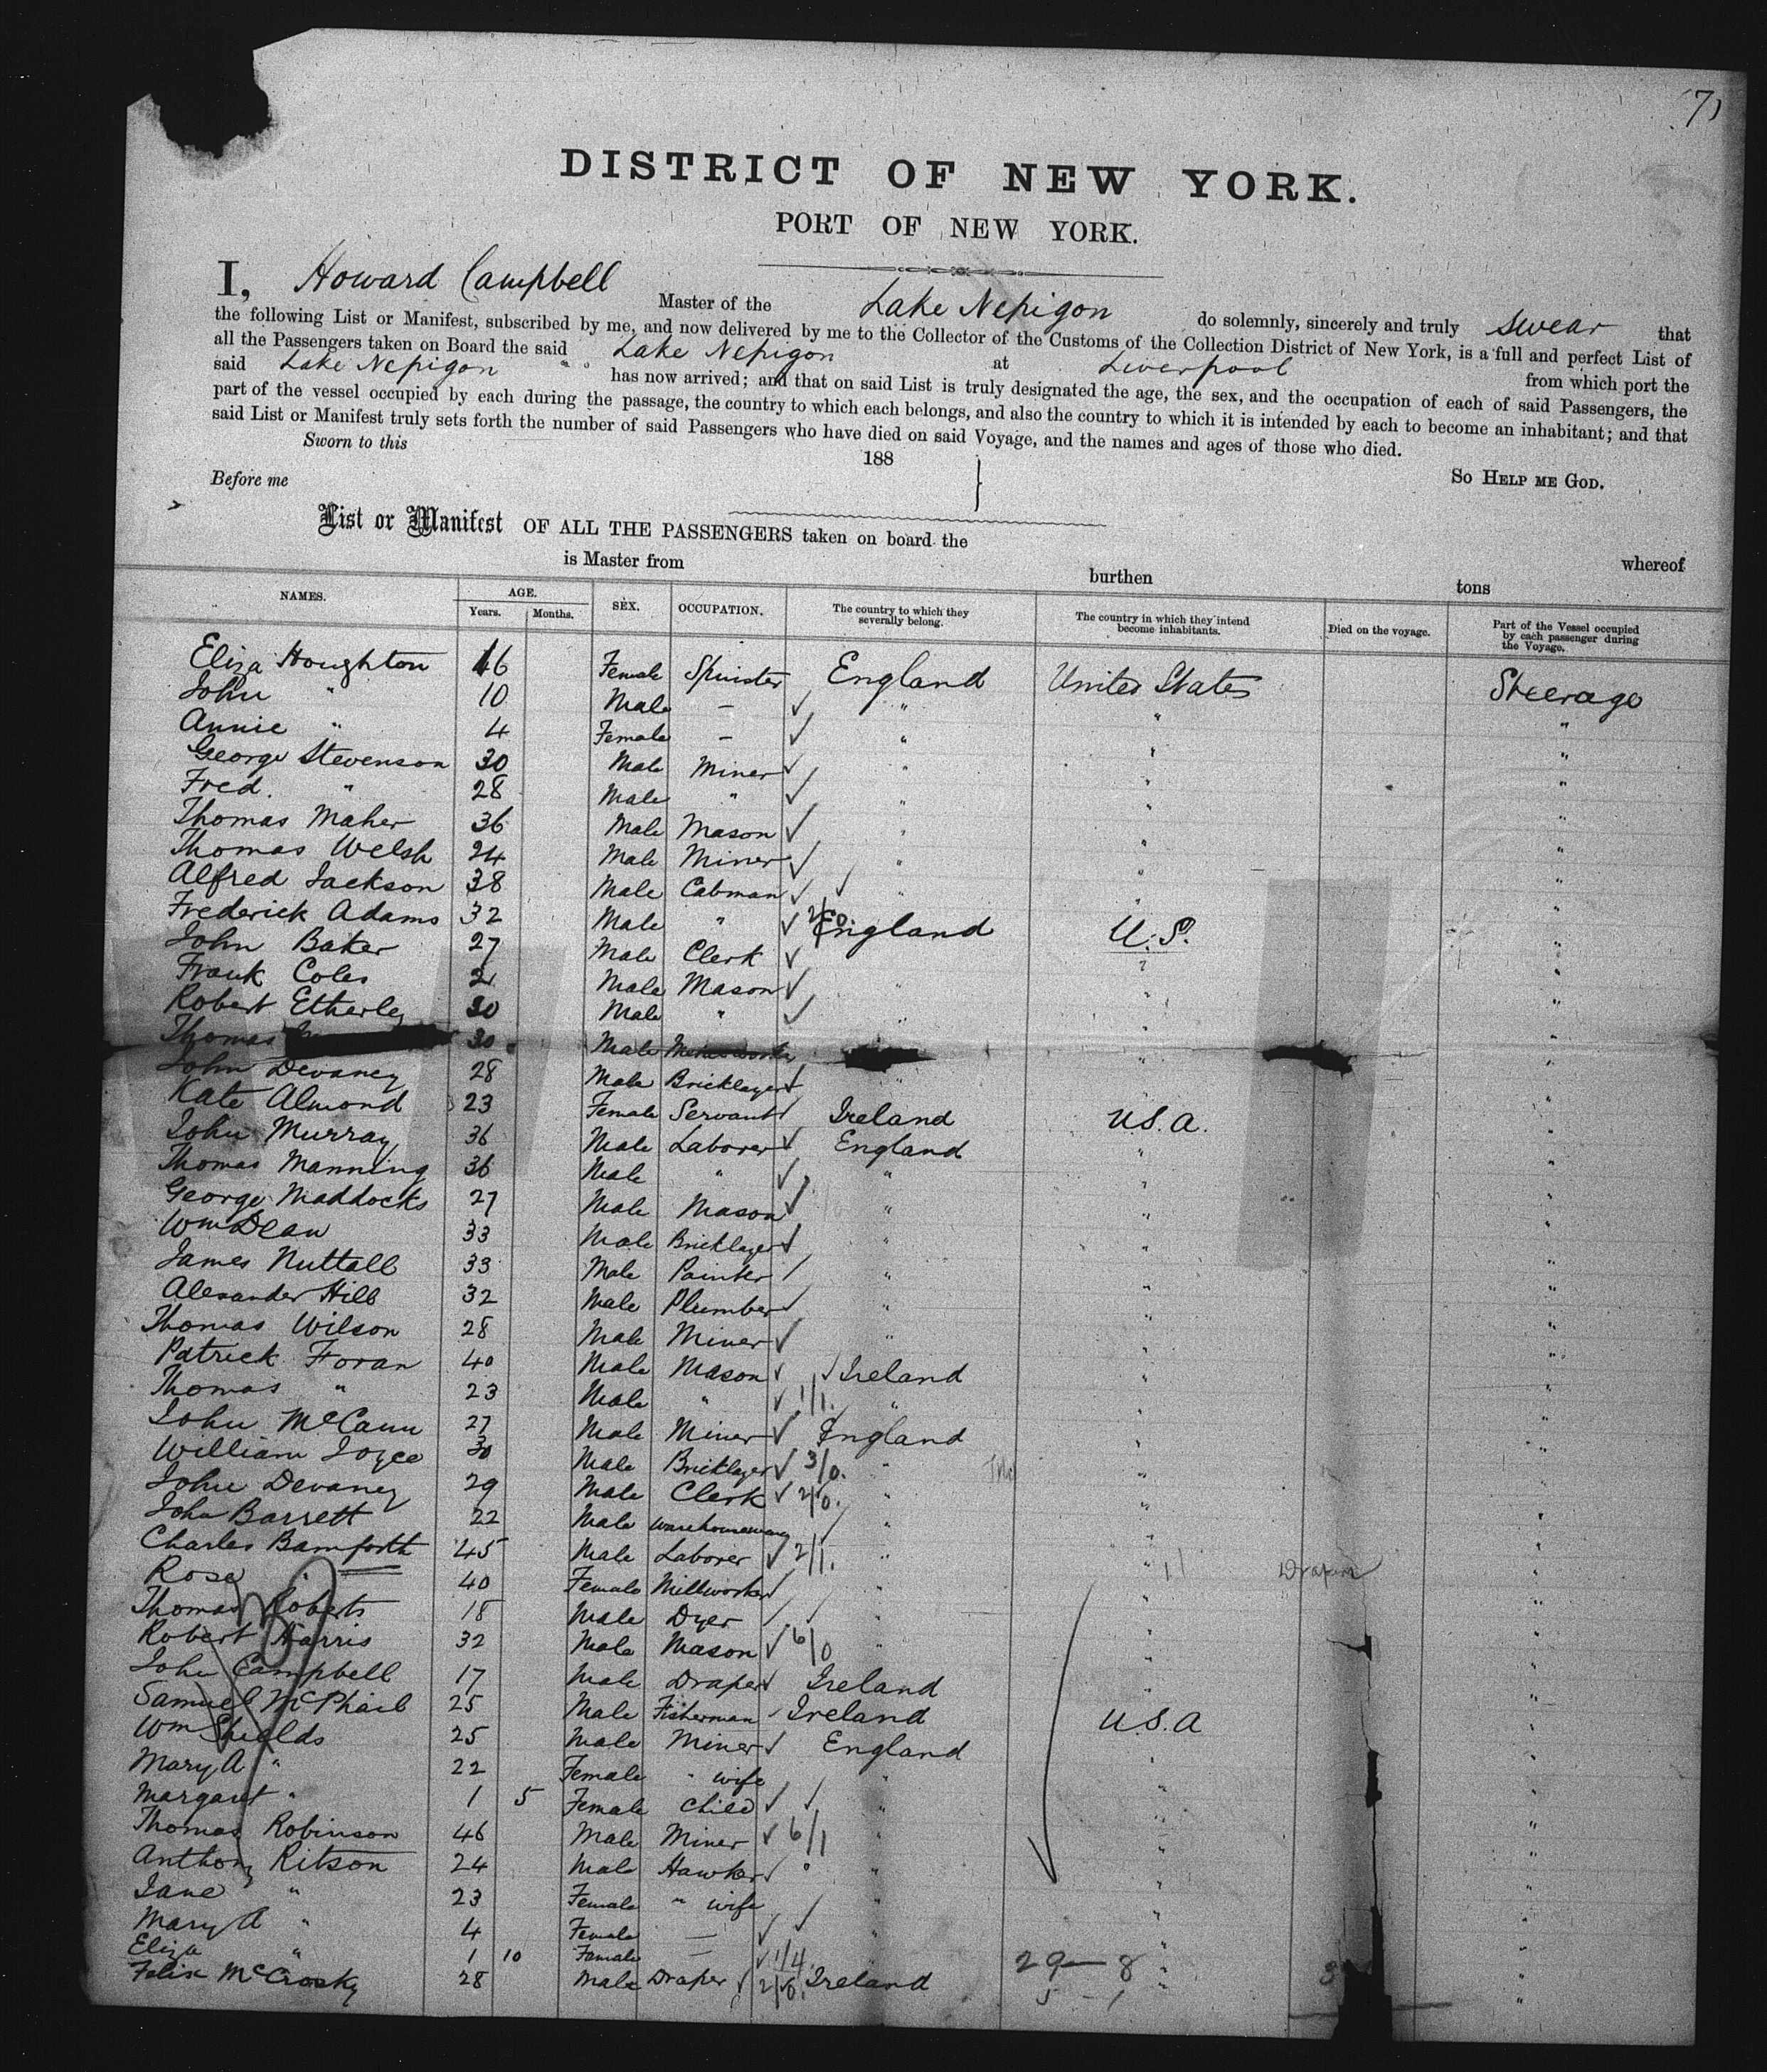 71
DISTRICT OF NEW YORK.
PORT OF NEW YORK.
I, Howard Campbell Master of the Lake Nepigon do solemnly, sincerely and truly swear that
the following List or Manifest, subscribed by me, and now delivered by me to the Collector of the Customs of the Collection District of New York, is a full and perfect List of
all the Passengers taken on Board the said Lake Nepigon at Liverpool from which port the
said Lake Nepigon has now arrived; and that on said List is truly designated the age, the sex, and the occupation of each of said Passengers, the
part of the vessel occupied by each during the passage, the country to which each belongs, and also the country to which it is intended by each to become an inhabitant; and that
said List or Manifest truly sets forth the number of said Passengers who have died on said Voyage, and the names and ages of those who died.
Sworn to this 188
So HELP ME GOD.
Before me
List or Manifest OF ALL THE PASSENGERS taken on board the whereof
is Master from burthen tons
NAMES. AGE. Years. Months. SEX. OCCUPATION. The country to which they severally belong. The country in which they intend become inhabitants. Died on the voyage. Part of the Vessel occupied by each passenger during the Voyage.
Eliza Houghton 16 Female Spinster England United States Steerage
John " 10 Male — " " "
Annie " 4 Female — " " "
George Stevenson 30 Male Miner " " "
Fred. " 28 Male " " " "
Thomas Maher 36 Male Mason " " "
Thomas Welsh 24 Male Miner " " "
Alfred Jackson 38 Male Cabman " " "
Frederick Adams 32 Male " 2/0 England U.S. "
John Baker 27 Male Clerk " "
Frank Coles 21 Male Mason " " "
Robert Etherley 30 Male " " " "
Thomas 30 Male " "
John Devaney 28 Male Bricklayer " "
Kate Almond 23 Female Servant Ireland U.S.A. "
John Murray 36 Male Laborer England " "
Thomas Manning 36 Male " " " "
George Maddocks 27 Male Mason " " "
Wm Dean 33 Male Bricklayer " " "
James Nuttall 33 Male Painter " " "
Alexander Hill 32 Male Plumber " " "
Thomas Wilson 28 Male Miner " " "
Patrick Foran 40 Male Mason Ireland " "
Thomas " 23 Male " 1/1. " " "
John McCann 27 Male Miner England " "
William Joyce 30 Male Bricklayer 3/0. " " "
John Devaney 29 Male Clerk 2/0. " " "
John Barrett 22 Male Warehouseman " " "
Charles Bamforth 45 Male Laborer 2/1. " " Draper "
Rose " 40 Female Millworker " " "
Thomas Roberts 18 Male Dyer " " "
Robert Harris 32 Male Mason 6/0 " " "
John Campbell 17 Male Draper Ireland " "
Samuel McPhail 25 Male Fisherman Ireland U.S.A "
Wm Shields 25 Male Miner England " "
Mary A " 22 Female " wife " " "
Margaret " 1 5 Female Child " " "
Thomas Robinson 46 Male Miner 6/1 " " "
Anthony Ritson 24 Male Hawker " " "
Jane " 23 Female " wife " " "
Mary A " 4 Female — " " "
Eliza " 1 10 Female — 1/4 29 — 8 "
Felix McCrosky 28 Male Draper 2/0. Ireland " "
5 - 1